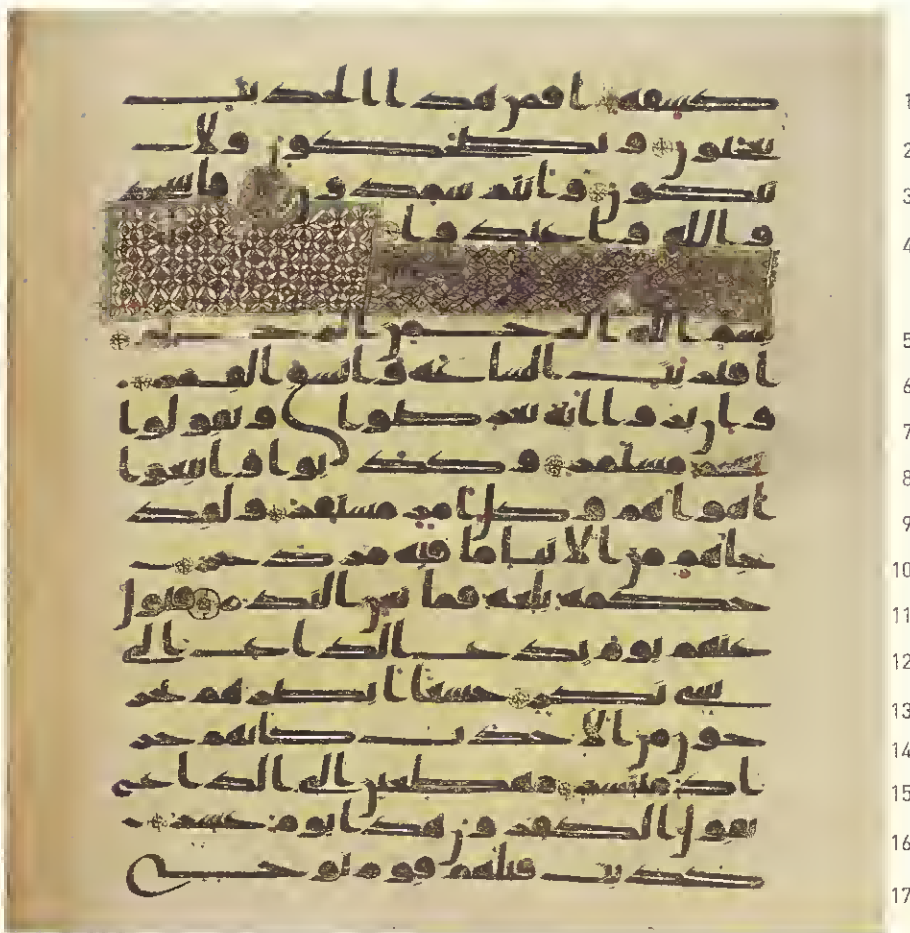 1 كاشفة افمن هذا الحديث
2 تعجبون وتضحكون ولا
3 تبكون وانتم سمدون فاسجد
4 وا لله واعبدوا
5 بسم الله الرحمن الرحيم
6 اقتربت الساعة وانشق القمر
7 وان يروا اية يعرضوا ويقولوا
8 سحر مستمر وكذبوا واتبعوا
9 اهواهم وكل امر مستقر ولقد
10 جاهم من الانبا ما فيه مزدجر
11 حكمة بلغة فما تغن النذر فتول
12 عنهم يوم يدع الداع الى
13 شى نكر خشعا ابصرهم يخر
14 جون من الاجداث كانهم جر
15 اد منتشر مهطعين الى الداع
16 يقول الكفرون هذا يوم عسر
17 كذبت قبلهم قوم نوح